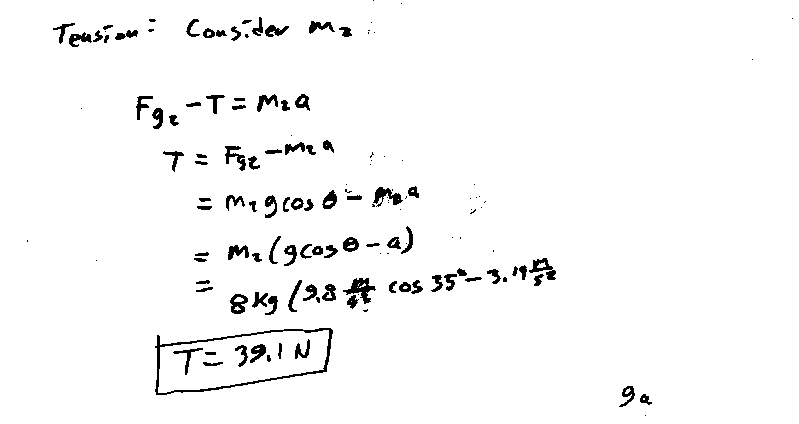 Tension: Consider m₂
Fg₂ - T = m₂a
T = Fg₂ - m₂a
= m₂gcosθ - m₂a
= m₂(gcosθ - a)
= 8Kg (9.8 m/s² cos 35° - 3.14 m/s²
T = 39.1 N
9a